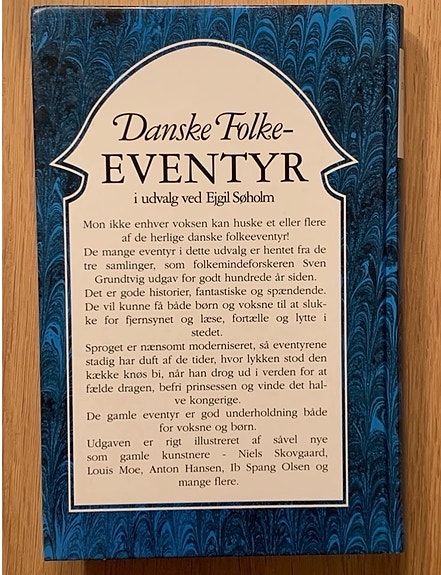 Danske Folke-
EVENTYR
i udvalg ved Ejgil Søholm
Mon ikke enhver voksen kan huske et eller flere
af de herlige danske folkeeventyr!
De mange eventyr i dette udvalg er hentet fra de
tre samlinger, som folkemindeforskeren Sven
Grundtvig udgav for godt hundrede år siden.
Det er gode historier, fantastiske og spændende.
De vil kunne få både børn og voksne til at sluk-
ke for fjernsynet og læse, fortælle og lytte i
stedet.
Sproget er nænsomt moderniseret, så eventyrene
stadig har duft af de tider, hvor lykken stod den
kække knøs bi, når han drog ud i verden for at
fælde dragen, befri prinsessen og vinde det hal-
ve kongerige.
De gamle eventyr er god underholdning både
for voksne og børn.
Udgaven er rigt illustreret af såvel nye
som gamle kunstnere - Niels Skovgaard,
Louis Moe, Anton Hansen, Ib Spang Olsen og
mange flere.